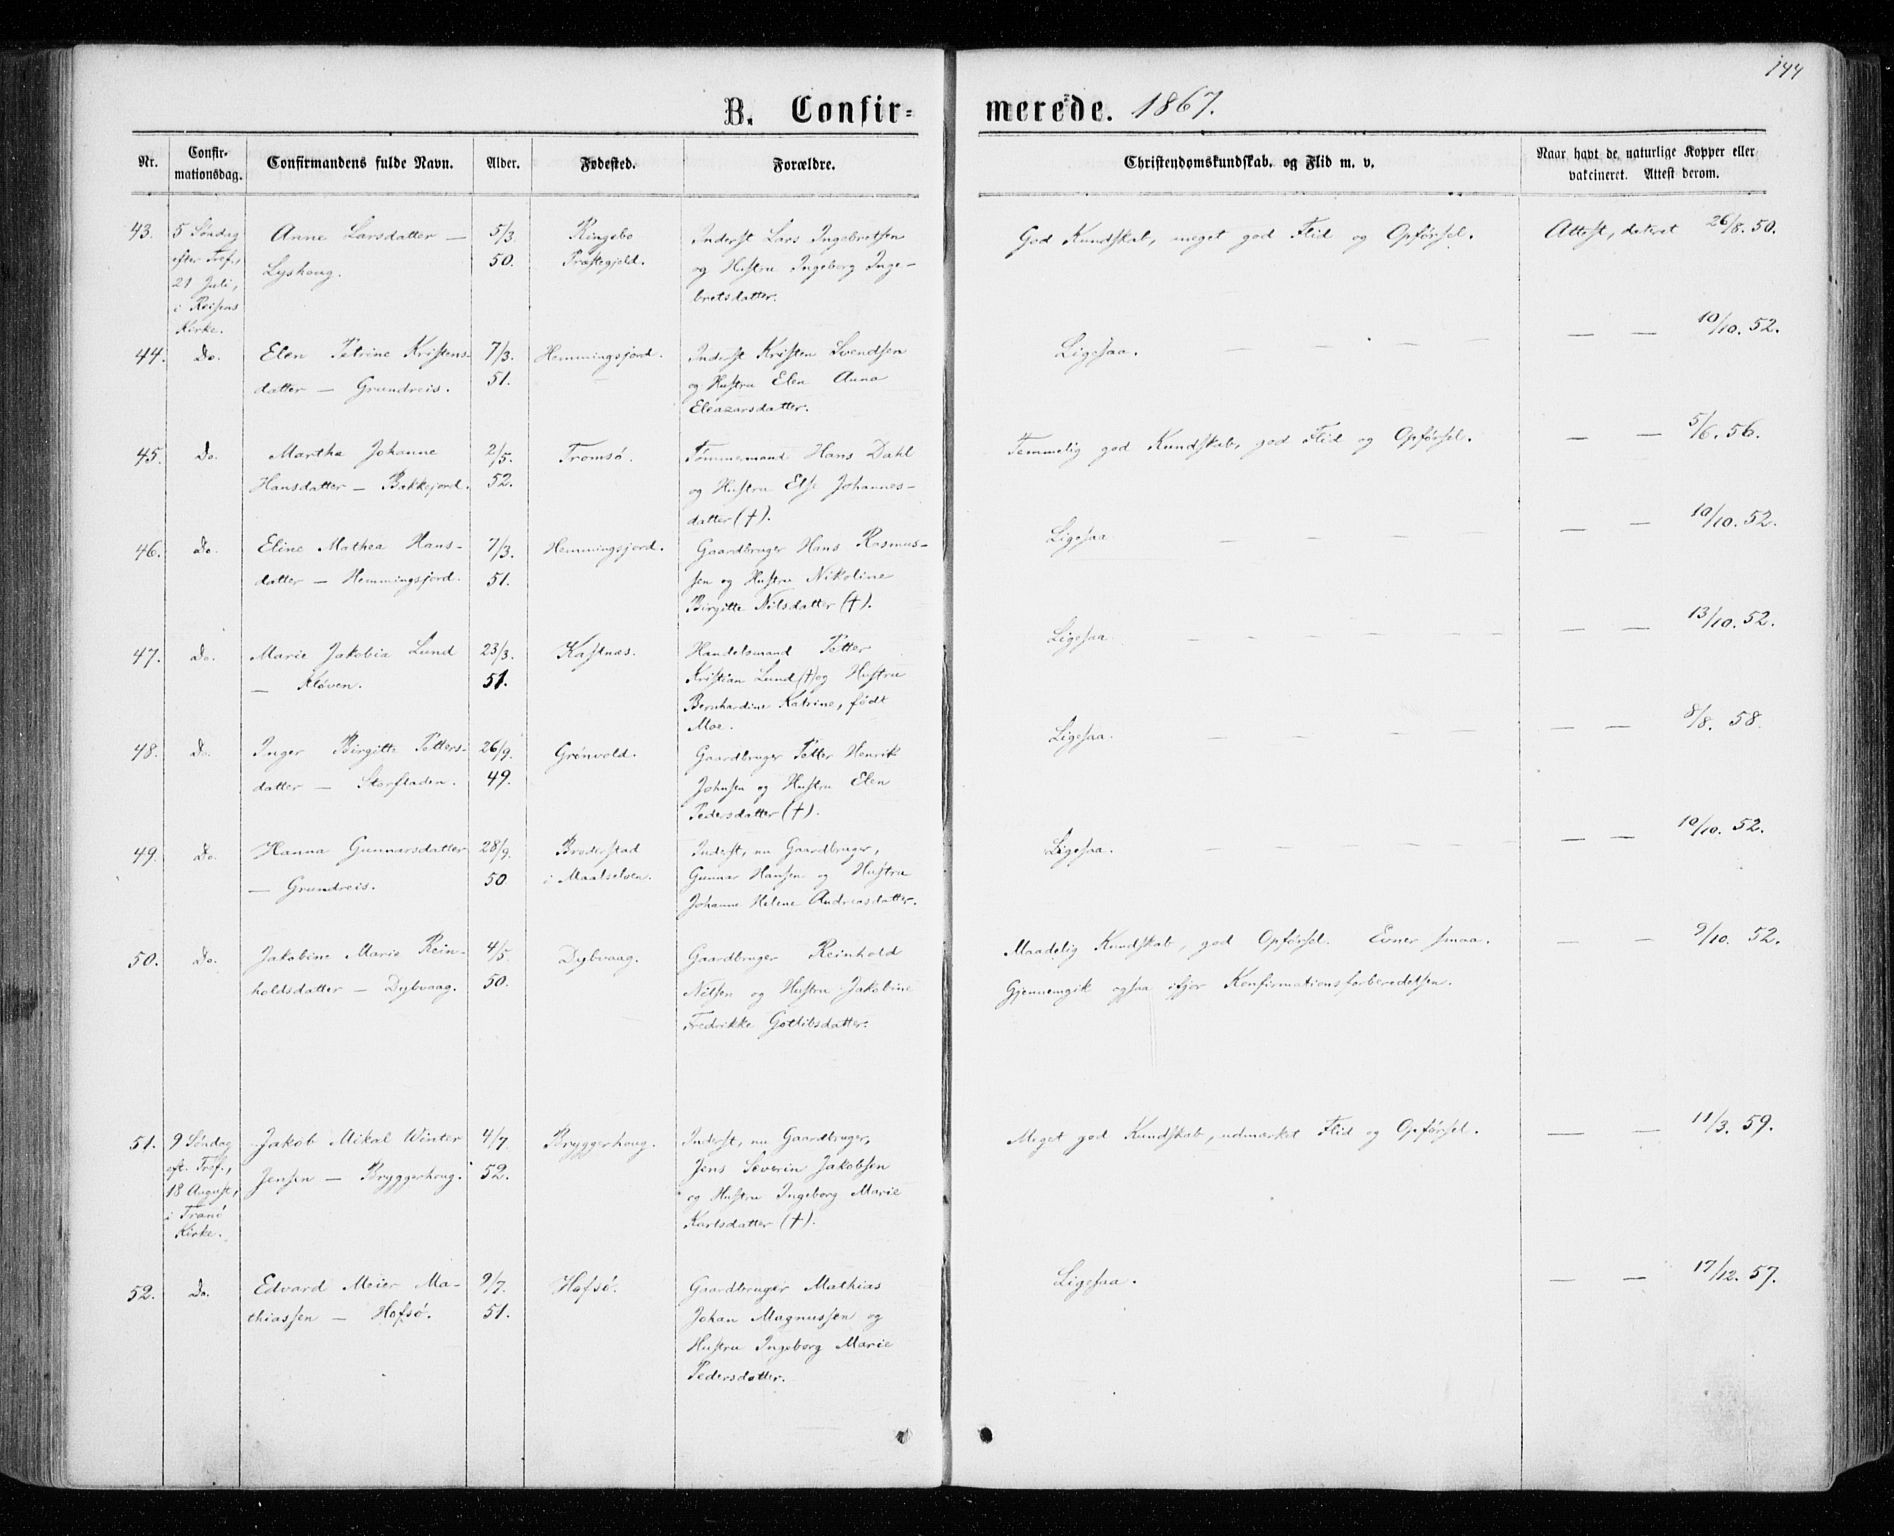 144
B. Confir-
merede. 1867.
Nr.
Confir-
mationsdag.
Confirmandens fulde Navn.
Alder.
Fødested.
Forældre.
Christendomskundskab, og Flid m. v.
Naar havt de naturlige Kopper eller
vakcineret. Attest derom.
43.
5 Søndag
efter Tref.,
21 Juli,
i Reisens
Kirke.
Anne Larsdatter —
Lyshoug.
5/3.
50.
Ringebo
Præstegjeld.
Inderst Lars Ingebretsen
og Hustru Ingeborg Inge-
bretsdatter.
God Kundskab, meget god Flid og Opførsel.
Attest, dateret 26/8. 50.
44.
Do.
Elen Petrine Kristens-
datter — Grundreis.
7/3.
51.
Hemmingsjord.
Inderst Kristen Svendsen
og Hustru Elen Anna
Eleazarsdatter.
Ligesaa. — — — —
— — 10/10. 52.
45.
Do.
Martha Johanne
Hansdatter — Bakkejord.
2/5.
52.
Tromsø.
Tømmermand Hans Dahl
og Hustru Else Johannes-
datter (†).
Temmelig god Kundskab, god Flid og Opførsel.
— — 5/6. 56.
46.
Do.
Eline Mathea Hans-
datter — Hemmingsjord.
7/3.
51.
Hemmingsjord.
Gaardbruger Hans Rasmus-
sen og Hustru Nikoline
Birgitte Nilsdatter (†).
Ligesaa — — — —
— — 10/10. 52.
47.
Do.
Marie Jakobia Lund
— Kløven.
23/3.
51.
Kastnæs.
Handelsmand Petter
Kristian Lund (†) og Hustru
Bernhardine Katrine, født
Moe.
Ligesaa. — — — —
— — 13/10. 52.
48.
Do.
Inger Birgitte Petters-
datter — Storfladen.
26/9.
49.
Grønvold.
Gaardbruger Petter Henrik
Johnsen og Hustru Elen
Pedersdatter (†).
Ligesaa. — — — —
— — 8/8. 58.
49.
Do.
Hanna Gunnarsdatter
— Grundreis.
28/9.
50
Broderstad
i Maalselven.
Inderst, nu Gaardbruger,
Gunnar Hansen og Hustru
Johanne Helene Andreasdatter.
Ligesaa. — — — —
— — 10/10. 52.
50.
Do.
Jakobine Marie Rein-
holdsdatter — Dybvaag.
4/5.
50.
Dybvaag.
Gaardbruger Reinhold
Nilsen og Hustru Jakobine
Fredrikke Gotlibsdatter.
Maadelig Kundskab, god Opførsel. Evner smaa.
Gjennemgik ogsaa ifjor Konfirmationsforberedelsen.
— — 9/10. 52.
51.
9 Søndag
eft. Tref.,
18 August,
i Tranø
Kirke.
Jakob Mikal Winter
Jensen — Bryggerhoug.
4/7
52.
Bryggerhoug.
Inderst, nu Gaardbruger,
Jens Severin Jakobsen
og Hustru Ingeborg Marie
Karlsdatter (†).
Meget god Kundskab, udmærket Flid og Opførsel.
— — 11/3. 59.
52.
Do.
Edvard Meier Ma-
thiassen — Hofsø.
9/7.
51.
Hofsø.
Gaardbruger Mathias
Johan Magnussen og
Hustru Ingeborg Marie
Pedersdatter.
Ligesaa.
— — 17/12. 57.